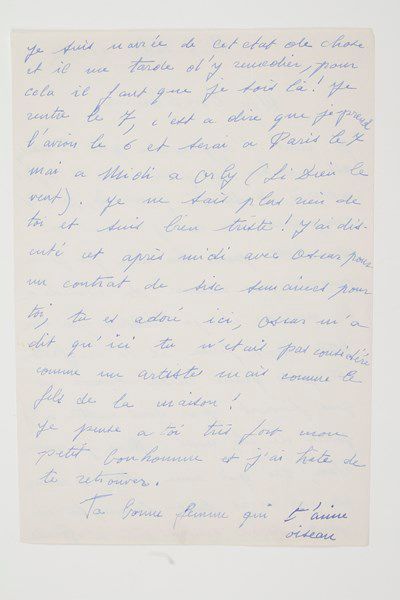 je suis navrée de cet etat de chose
et il me tarde d'y remedier, pour
cela il faut que je sois là! Je
rentre le 7, c'est a dire que je prend
l'avion le 6 et serai a Paris le 7
mai a Midi a Orly (Si Dieu le
veut). Je ne sais plus rien de
toi et suis bien triste! J'ai dis-
cuté cet après midi avec Oscar pour
un contrat de six semaines pour
toi, tu es adoré ici, Oscar m'a
dit qu'ici tu n'etais pas considéré
comme un artiste mais comme le
fils de la maison!
Je pense a toi très fort mon
petit bonhomme et j'ai hate de
te retrouver.
Ta bonne femme qui t'aime
oiseau